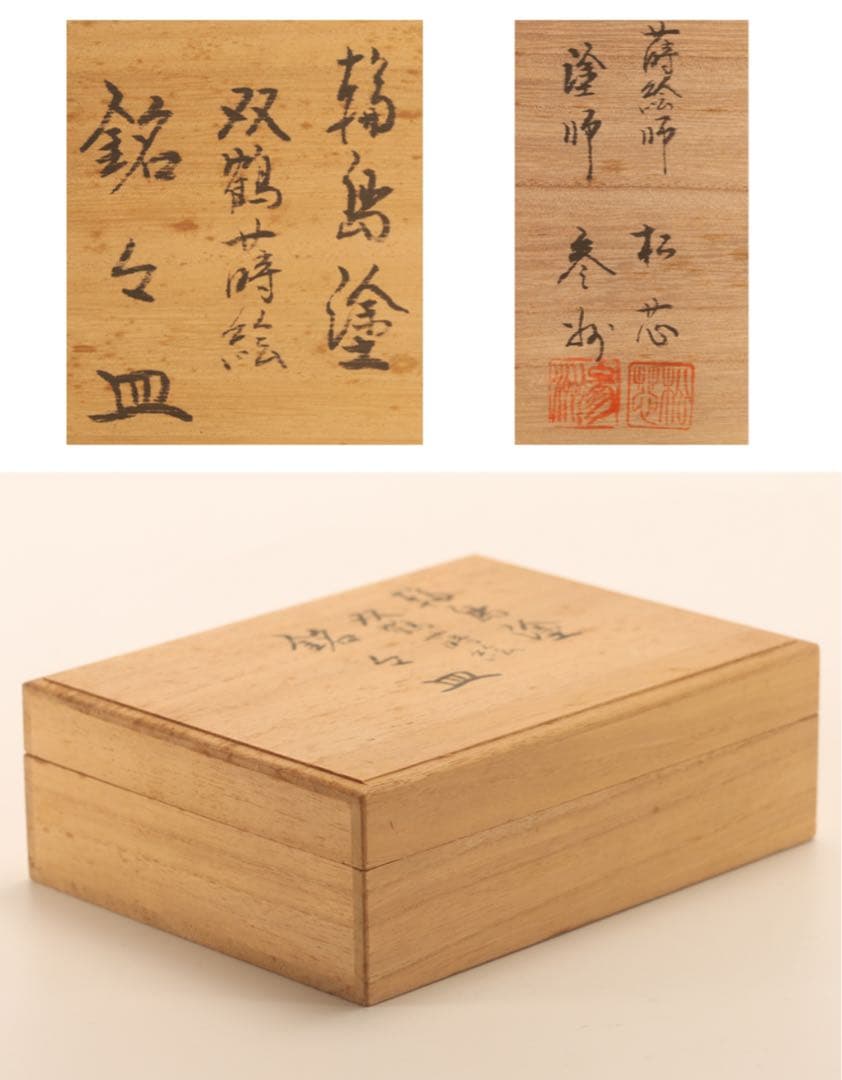 輪島塗
双鶴蒔絵
銘々皿
蒔絵師 松芯
塗師
輪島塗
双鶴蒔絵
銘々皿